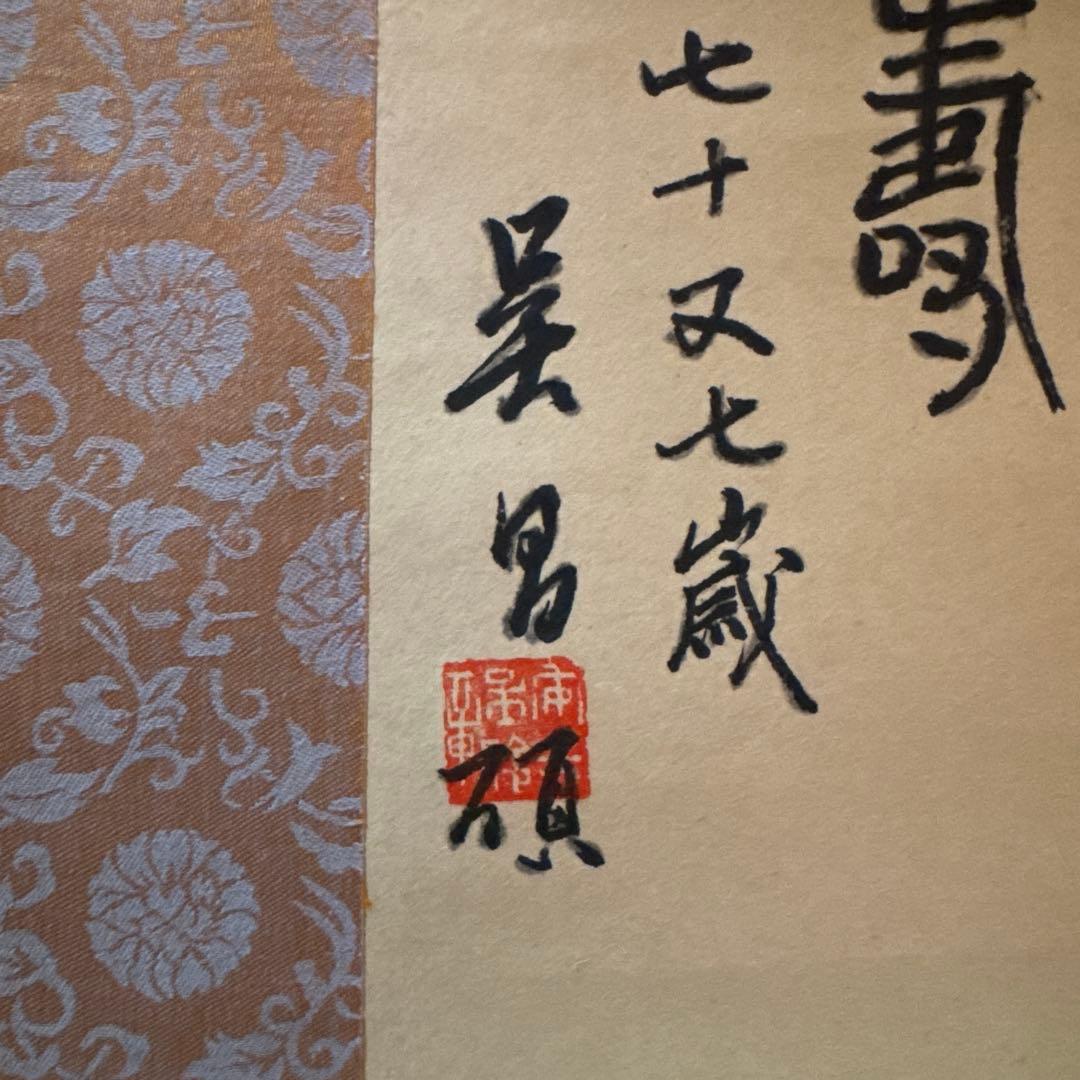 壽
七十又七歲
吳昌碩